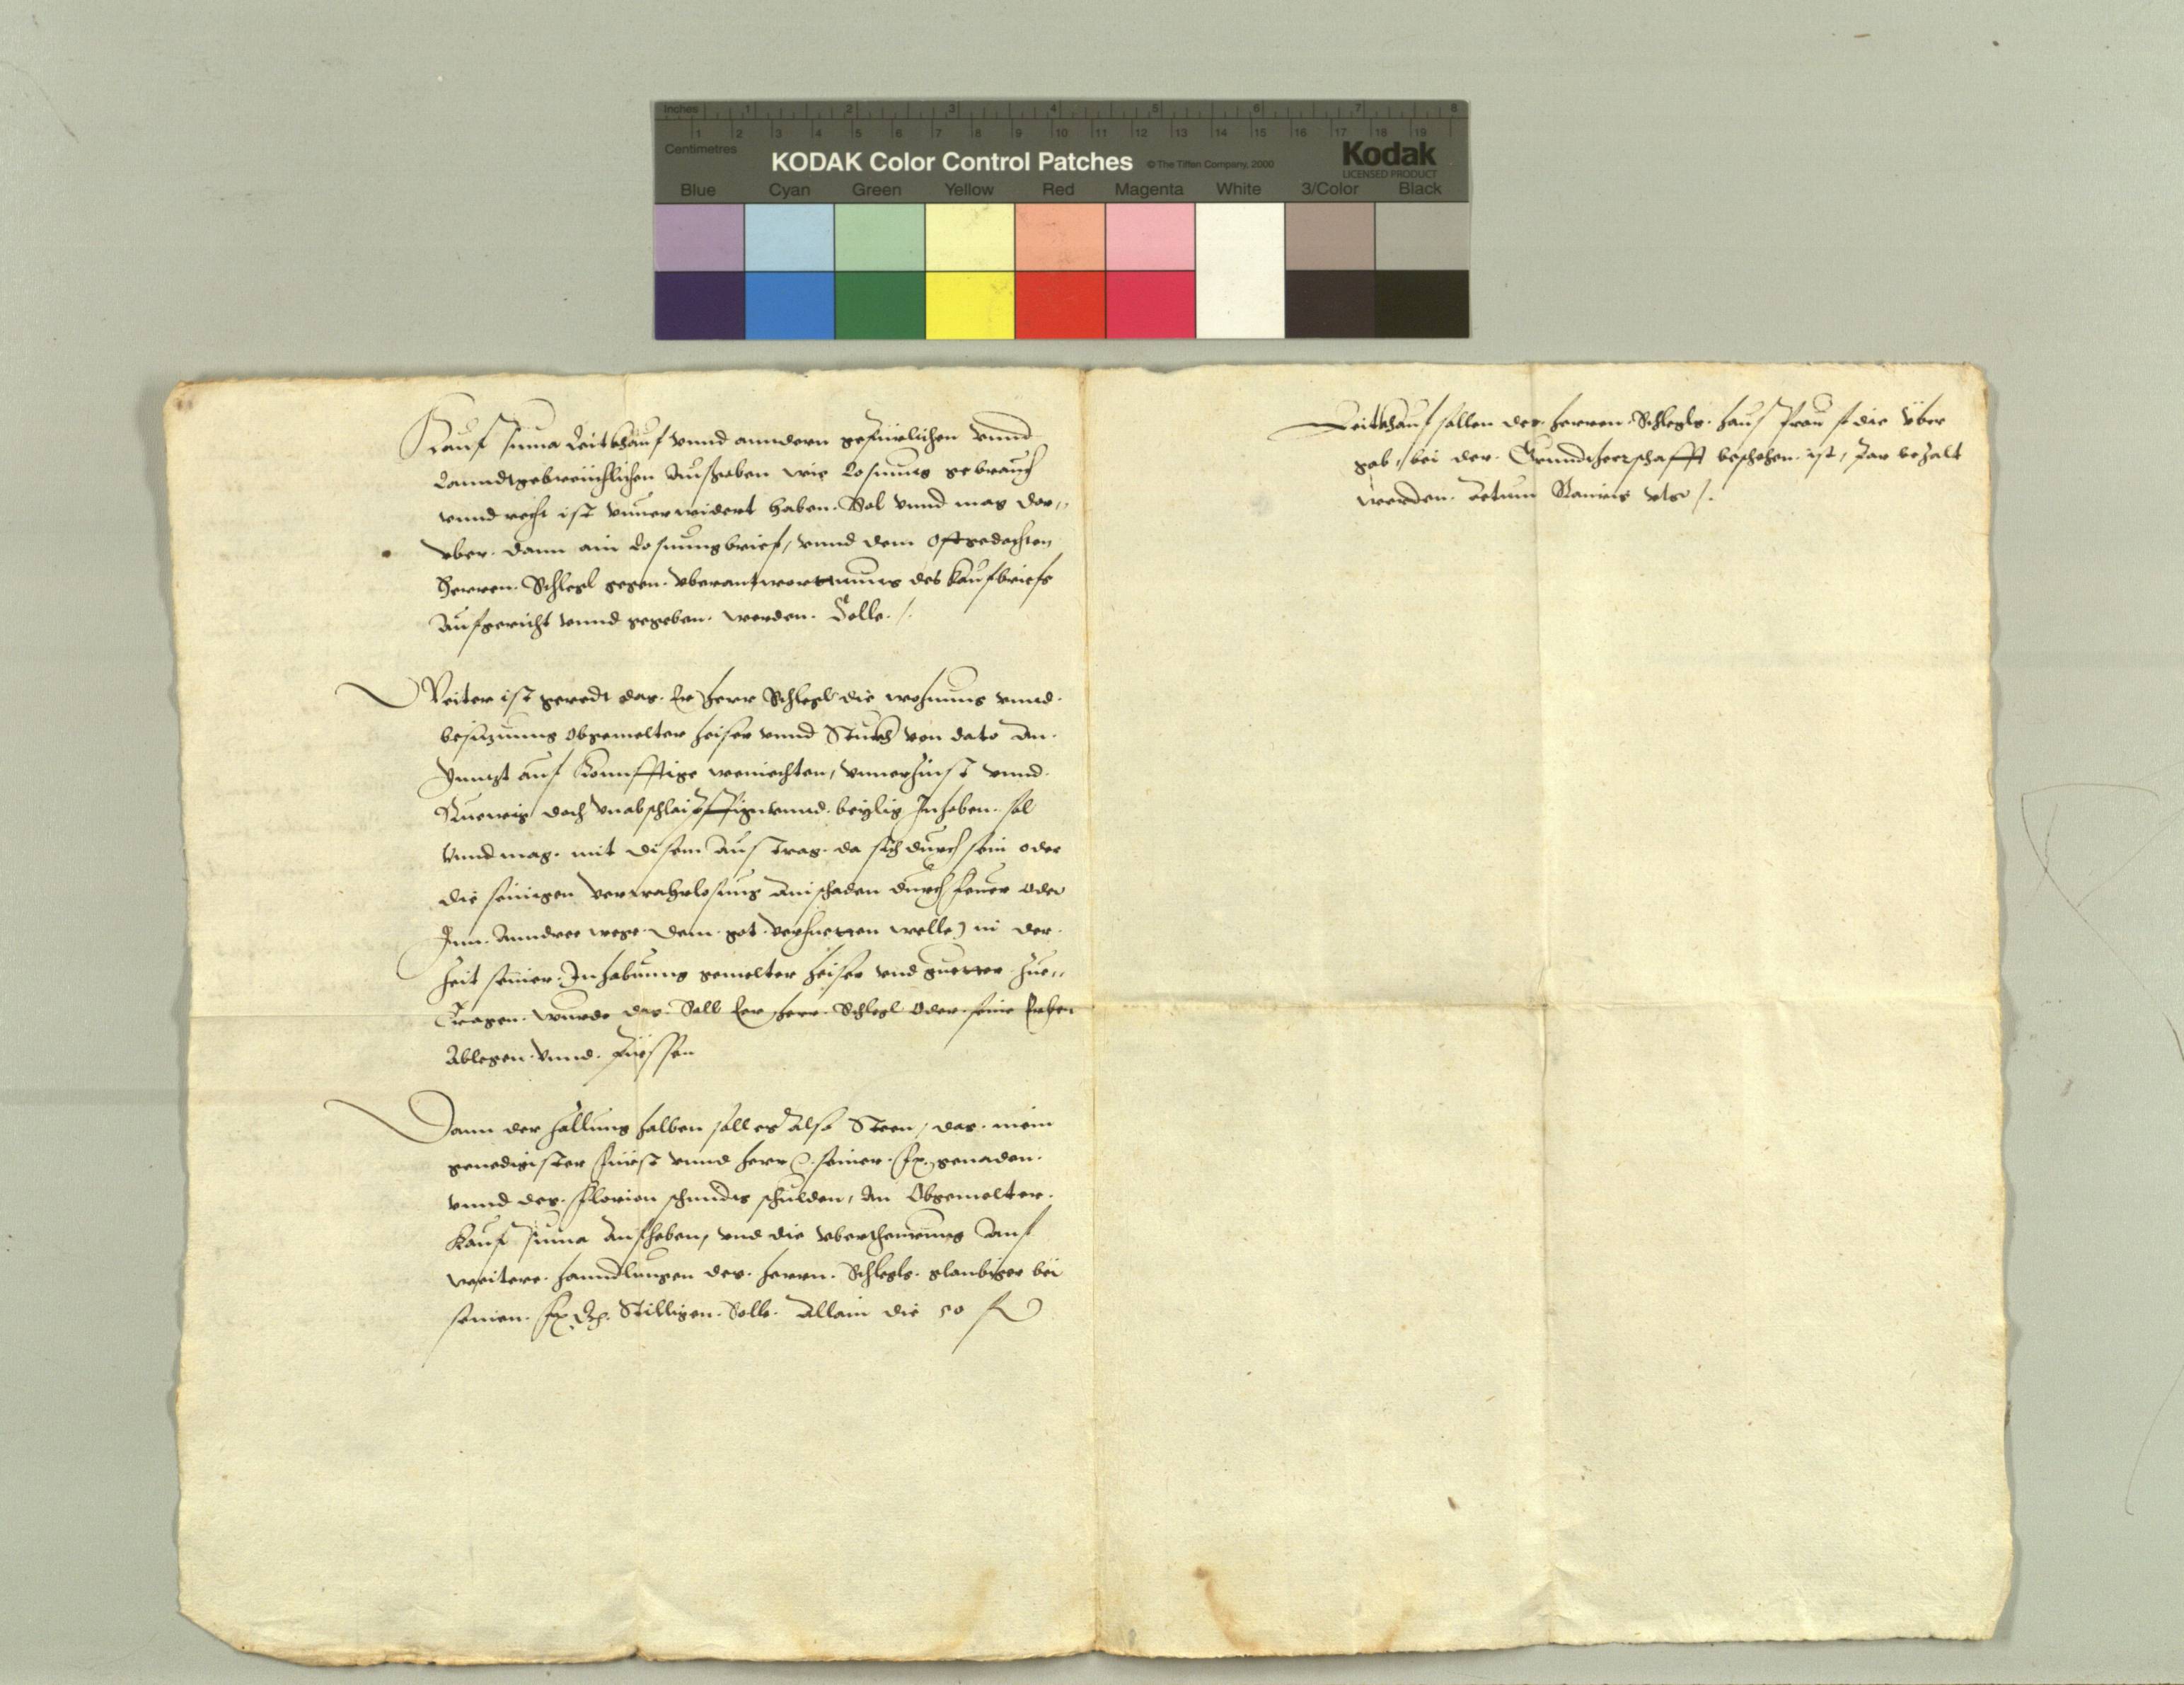 Inches 1 2 3 4 5 6 7 8
1 2 3 4 5 6 7 8 9 10 11 12 13 14 15 16 17 18 19
Centimetres
KODAK Color Control Patches © The Tiffen Company, 2000 Kodak
LICENSED PRODUCT
Blue Cyan Green Yellow Red Magenta White 3/Color Black
Kauf suma Leitkhauf vnnd anndern gefürlichen vnnd
Lanndtgebreüchlichen Ausgaben wie Losnung gebrauch
vnnd recht ist vnuerwidert haben. Sol vnnd mag dar„
vber. dann ain Losnungbrief, vnnd dem oftgedachten
Herren. Schlegl gegen. vberantworttnung des kaufbriefs
Aufgericht vnnd gegeben. werden. Solle. /.
Weiter ist geredt das. Er Herr Schlegl die wohnung vnnd.
besizung obgemelter heiser vnnd Stuckh von dato An.
Yunngst auf Konnfftige weniechten, vnuerzinst vnnd.
Ruewig doch vnabschlaiffig vnnd. beylig Inhaben. sol
vnnd mag. mit disem Austrag. da sich durch sein oder
die seinigen verwahrlosung ain schaden durch feuer oder
Inn. Anndere wege. dem. got. verhuetten welle) in der.
Zeit seiner. Inhabung gemelter heiser vnd guetter. Zue„
Tragen. wurde das. Soll Er herr. Schlegl oder. seine Erben
Ablegen. vnnd. Püessen
Dann der Zallung halben soll es also Steen, das. mein
genedigister Fürst vnnd herr seiner. fr. genaden.
vnnd des. Florian schmidts schulden, An Obgemelter.
Kauf suma Aufheben, vnd die vbertheurung Auf
weitere. hanndlungen des. herrn. Schlegls. glaubiger bei
seinen. fr. Stilligen. Solle. Allain die 50 f
Leitkhauf sollen des. herren. Schlegls. hausfrau so die vber
gab, bei der. Grundtherrschafft beschehen. ist, Par bezalt
werden. Actum vts /.